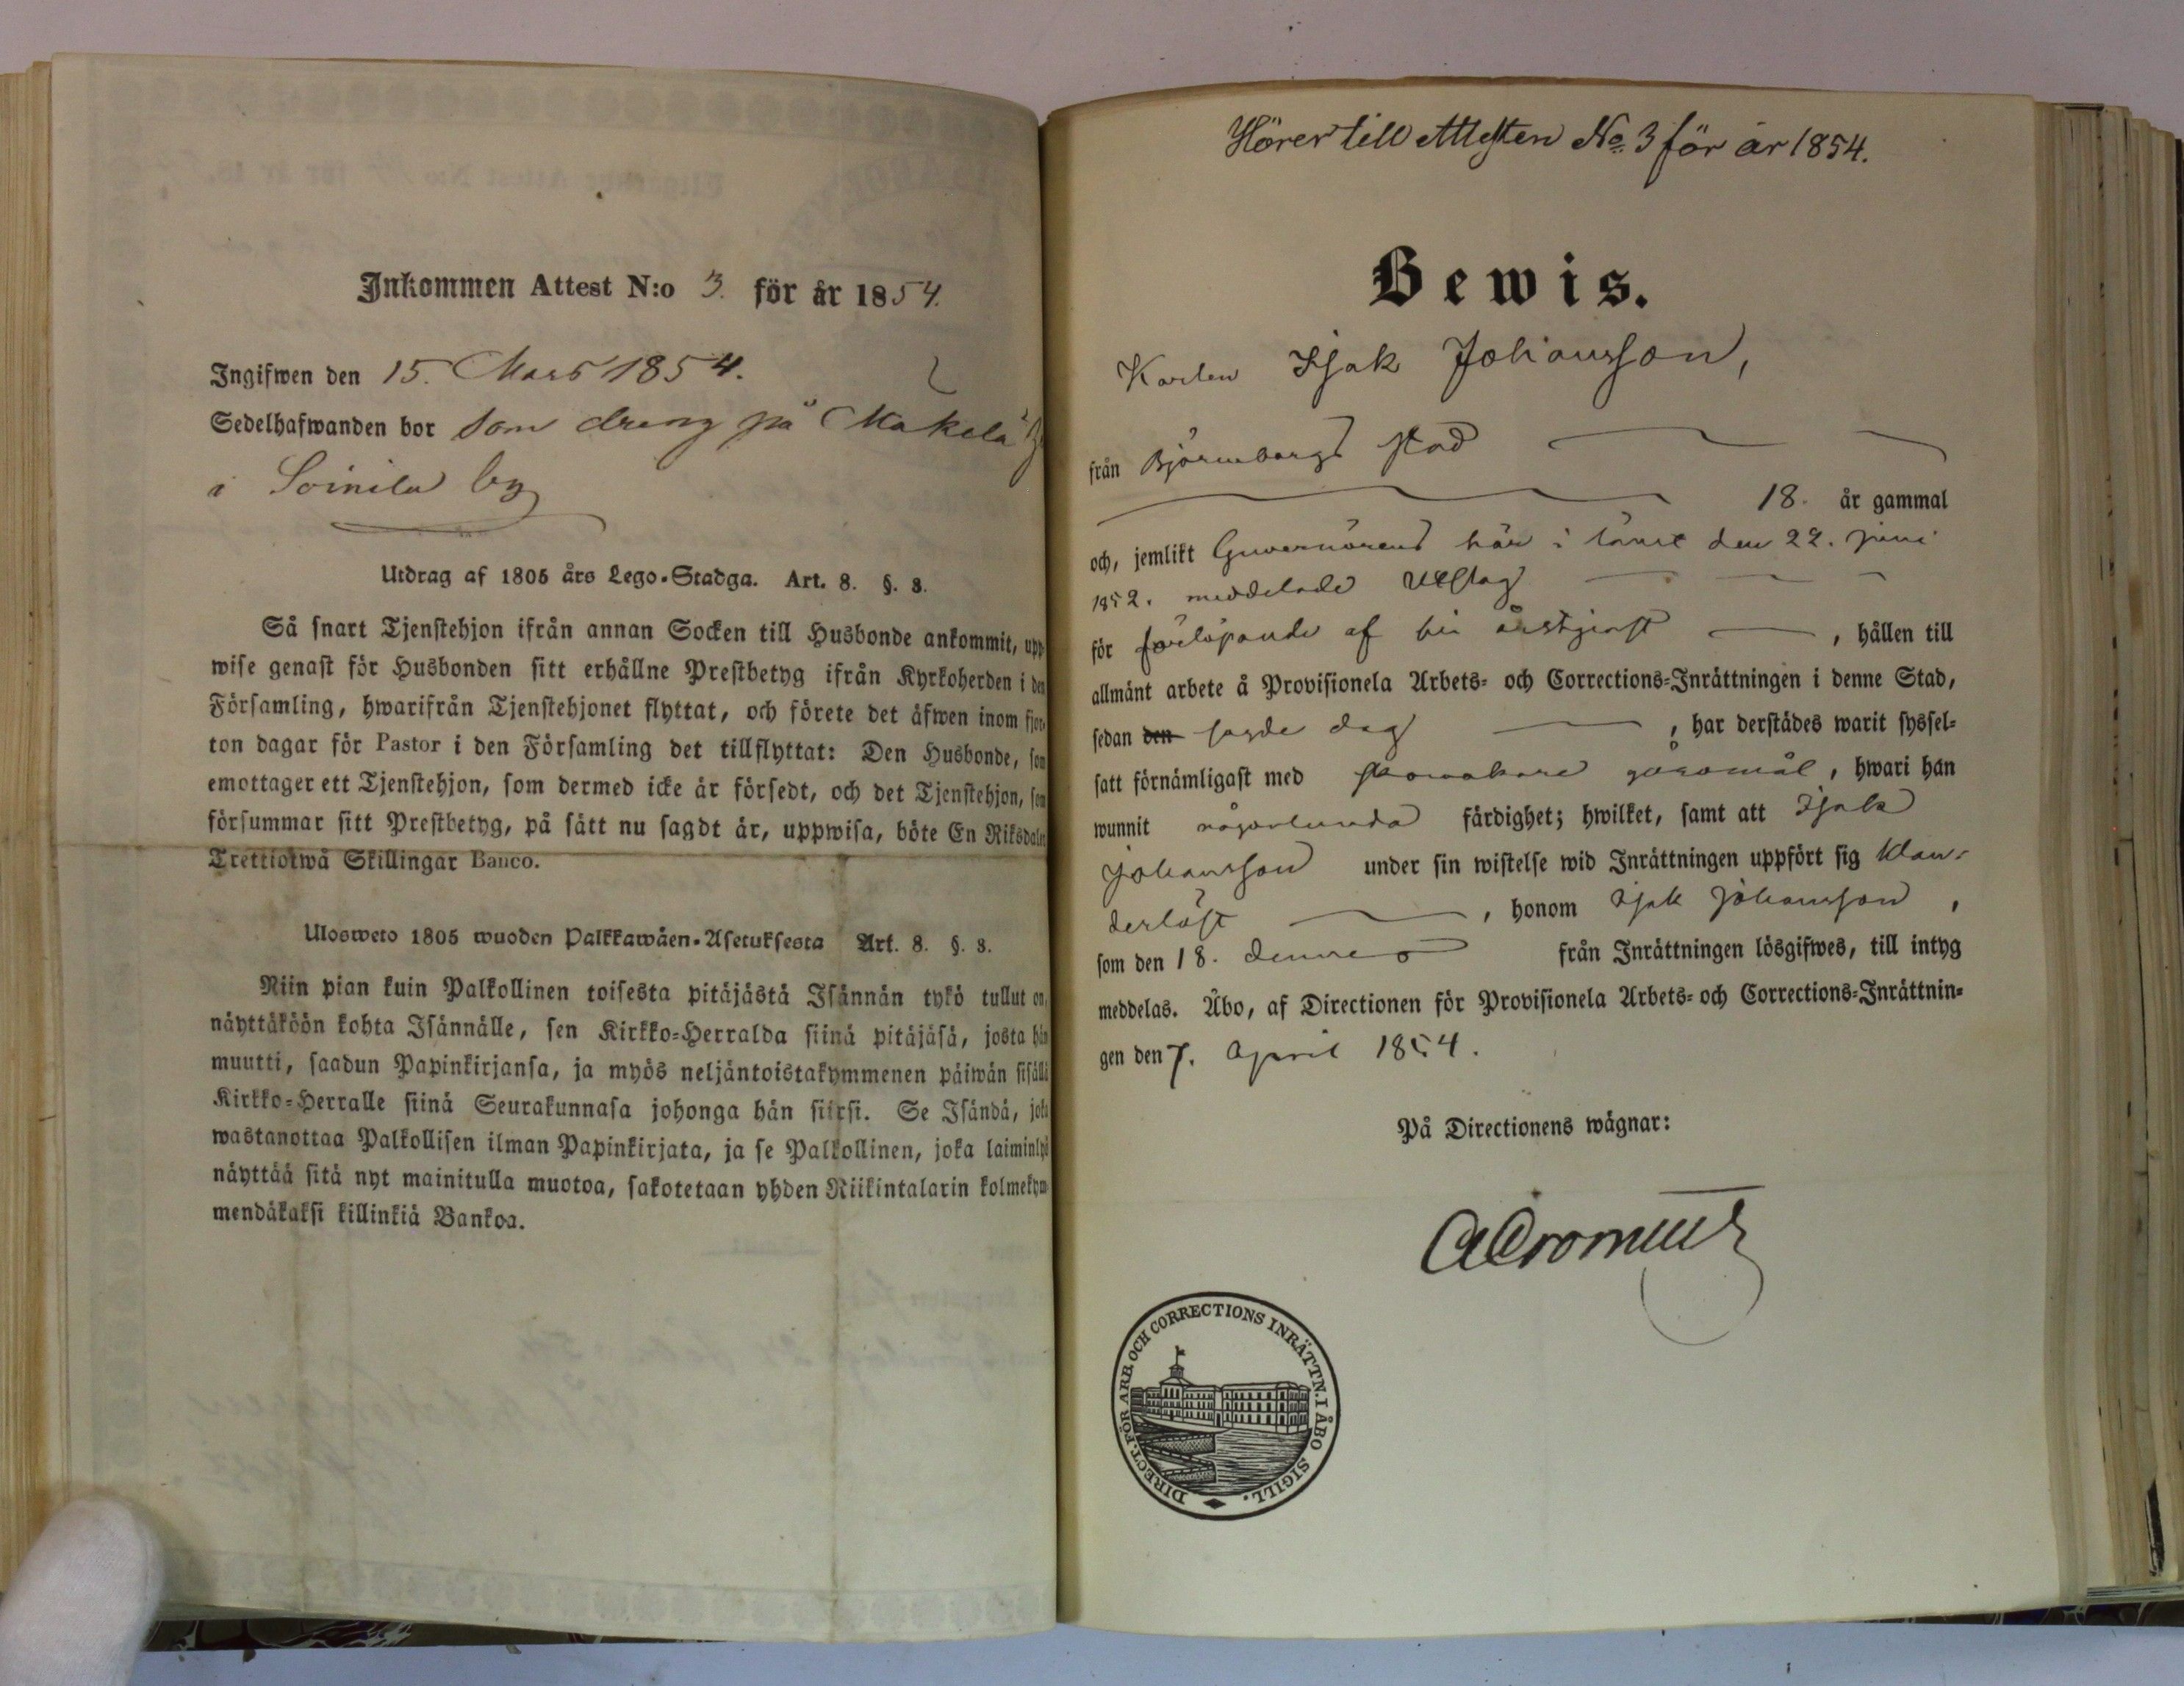 Inkommen Attest N:o 3. för år 1854.
Ingifwen den 15. Mars 1854.
Sedelhafwanden bor som dreng på Mäkelä
i Soinila by
Utdrag af 1805 års Lego-Stadga. Art. 8. §. 8.
Så snart Tjenstehjon ifrån annan Socken till Husbonde ankommit, upp
wise genast för Husbonden sitt erhållne Prestbetyg ifrån Kyrkoherden i den
Församling, hwarifrån Tjenstehjonet flyttat, och förete det äfwen inom fjor
ton dagar för Pastor i den Församling det tillflyttat: Den Husbonde, som
emottager ett Tjenstehjon, som dermed icke är försedt, och det Tjenstehjon, som
försummar sitt Prestbetyg, på sätt nu sagdt är, uppwisa, böte En Riksdaler
Trettiotwå Skillingar Banco.
Ulosweto 1805 wuoden Palkkawäen-Asetuksesta Art. 8. §. 8.
Niin pian kuin Palkollinen toisesta pitäjästä Isännän tykö tullut on,
näyttäköön kohta Isännälle, sen Kirkko-Herralda siinä pitäjäsä, josta hän
muutti, saadun Papinkirjansa, ja myös neljäntoistakymmenen päiwän sisällä
Kirkko-Herralle siinä Seurakunnasa johonga hän siirsi. Se Isändä, joka
wastanottaa Palkollisen ilman Papinkirjata, ja se Palkollinen, joka laiminlyö
näyttää sitä nyt mainitulla muotoa, sakotetaan yhden Riikintalarin kolmekym
mendäkaksi killinkiä Bankoa.
Hörer till Attesten No 3 för år 1854.
Bewis.
Karlen Isak Johansson,
från Björneborgs stad
18. år gammal
och, jemlikt Guvernörens här i länet den 22. Juni
1852. meddelade Utslag
för förlöpande af sin årstjenst, hållen till
allmänt arbete å Provisionela Arbets- och Corrections-Inrättningen i denne Stad,
sedan den sagde dag, har derstädes warit syssel-
satt förnämligast med skomakare göromål, hwari han
wunnit någorlunda färdighet; hwilket, samt att Isak
Johansson under sin wistelse wid Inrättningen uppfört sig klan-
derlöst, honom Isak Johansson,
som den 18. denne från Inrättningen lösgifwes, till intyg
meddelas. Åbo, af Directionen för Provisionela Arbets- och Corrections-Inrättnin-
gen den 7. April 1854.
På Directionens wägnar:
DIRECT. FÖR ARB. OCH CORRECTIONS INRÄTTN. I ÅBO SIGILL.